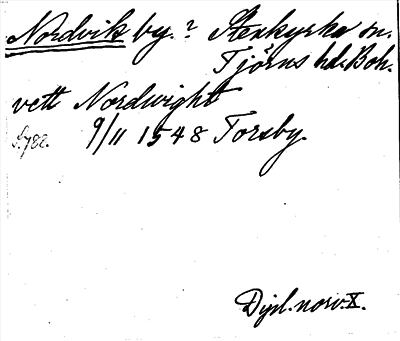 Nordvik by.? Stenkyrka sn.
Tjörns hd. Boh.
vett Nordwight
S. 782. 9/11 1548 Torsby.
Dipl. norv. X.